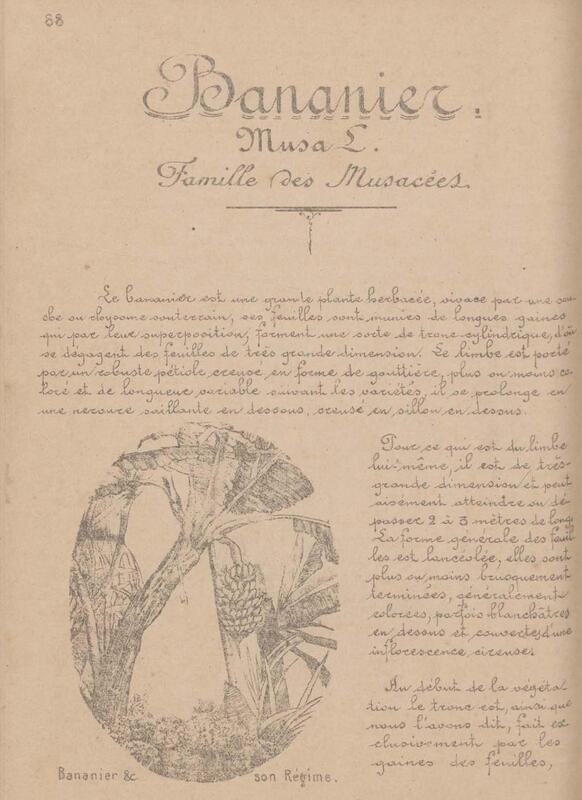 88
Bananier.
Musa L.
Famille des Musacées.
Le bananier est une grante plante herbacée, vivace par une sou-
che ou rhysome souterrain, ses feuilles sont munies de longues gaines
qui par leur superposition, forment une sorte de tronc cylindrique, d'où
se dégagent des feuilles de très grande dimension. Le limbe est porté
par un robuste pétiole creusé en forme de gouttière, plus ou moins co-
loré et de longueur variable suivant les variétés, il se prolonge en
une nervure saillante en dessous, creusé en sillon en dessus.
Pour ce qui est du limbe
lui-même, il est de très
grande dimension et peut
aisément atteindre ou dé-
passer 2 à 3 mètres de long.
La forme générale des feuil-
les est lancéolée, elles sont
plus ou moins brusquement
terminées, généralement
colorées, parfois blanchâtres
en dessous et couvertes d'une
inflorescence cireuse.
Au début de la végéta-
tion le tronc est, ainsi que
nous l'avons dit, fait ex-
clusivement par les
gaines des feuilles,
Bananier & son Régime.